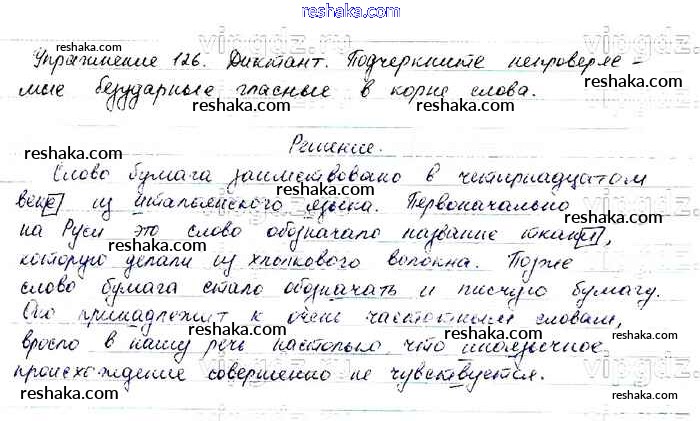 reshaka.com
Упражнение 126. Диктант. Подчеркните непроверяе-
мые безударные гласные в корне слова.
Решение.
Слово бумага заимствовано в четырнадцатом
веке из итальянского языка. Первоначально
на Руси это слово обозначало название ткани,
которую делали из хлопкового волокна. Позже
слово бумага стало обозначать и писчую бумагу.
Оно принадлежит к очень частотным словам,
вросло в нашу речь настолько, что иноязычное
происхождение совершенно не чувствуется.